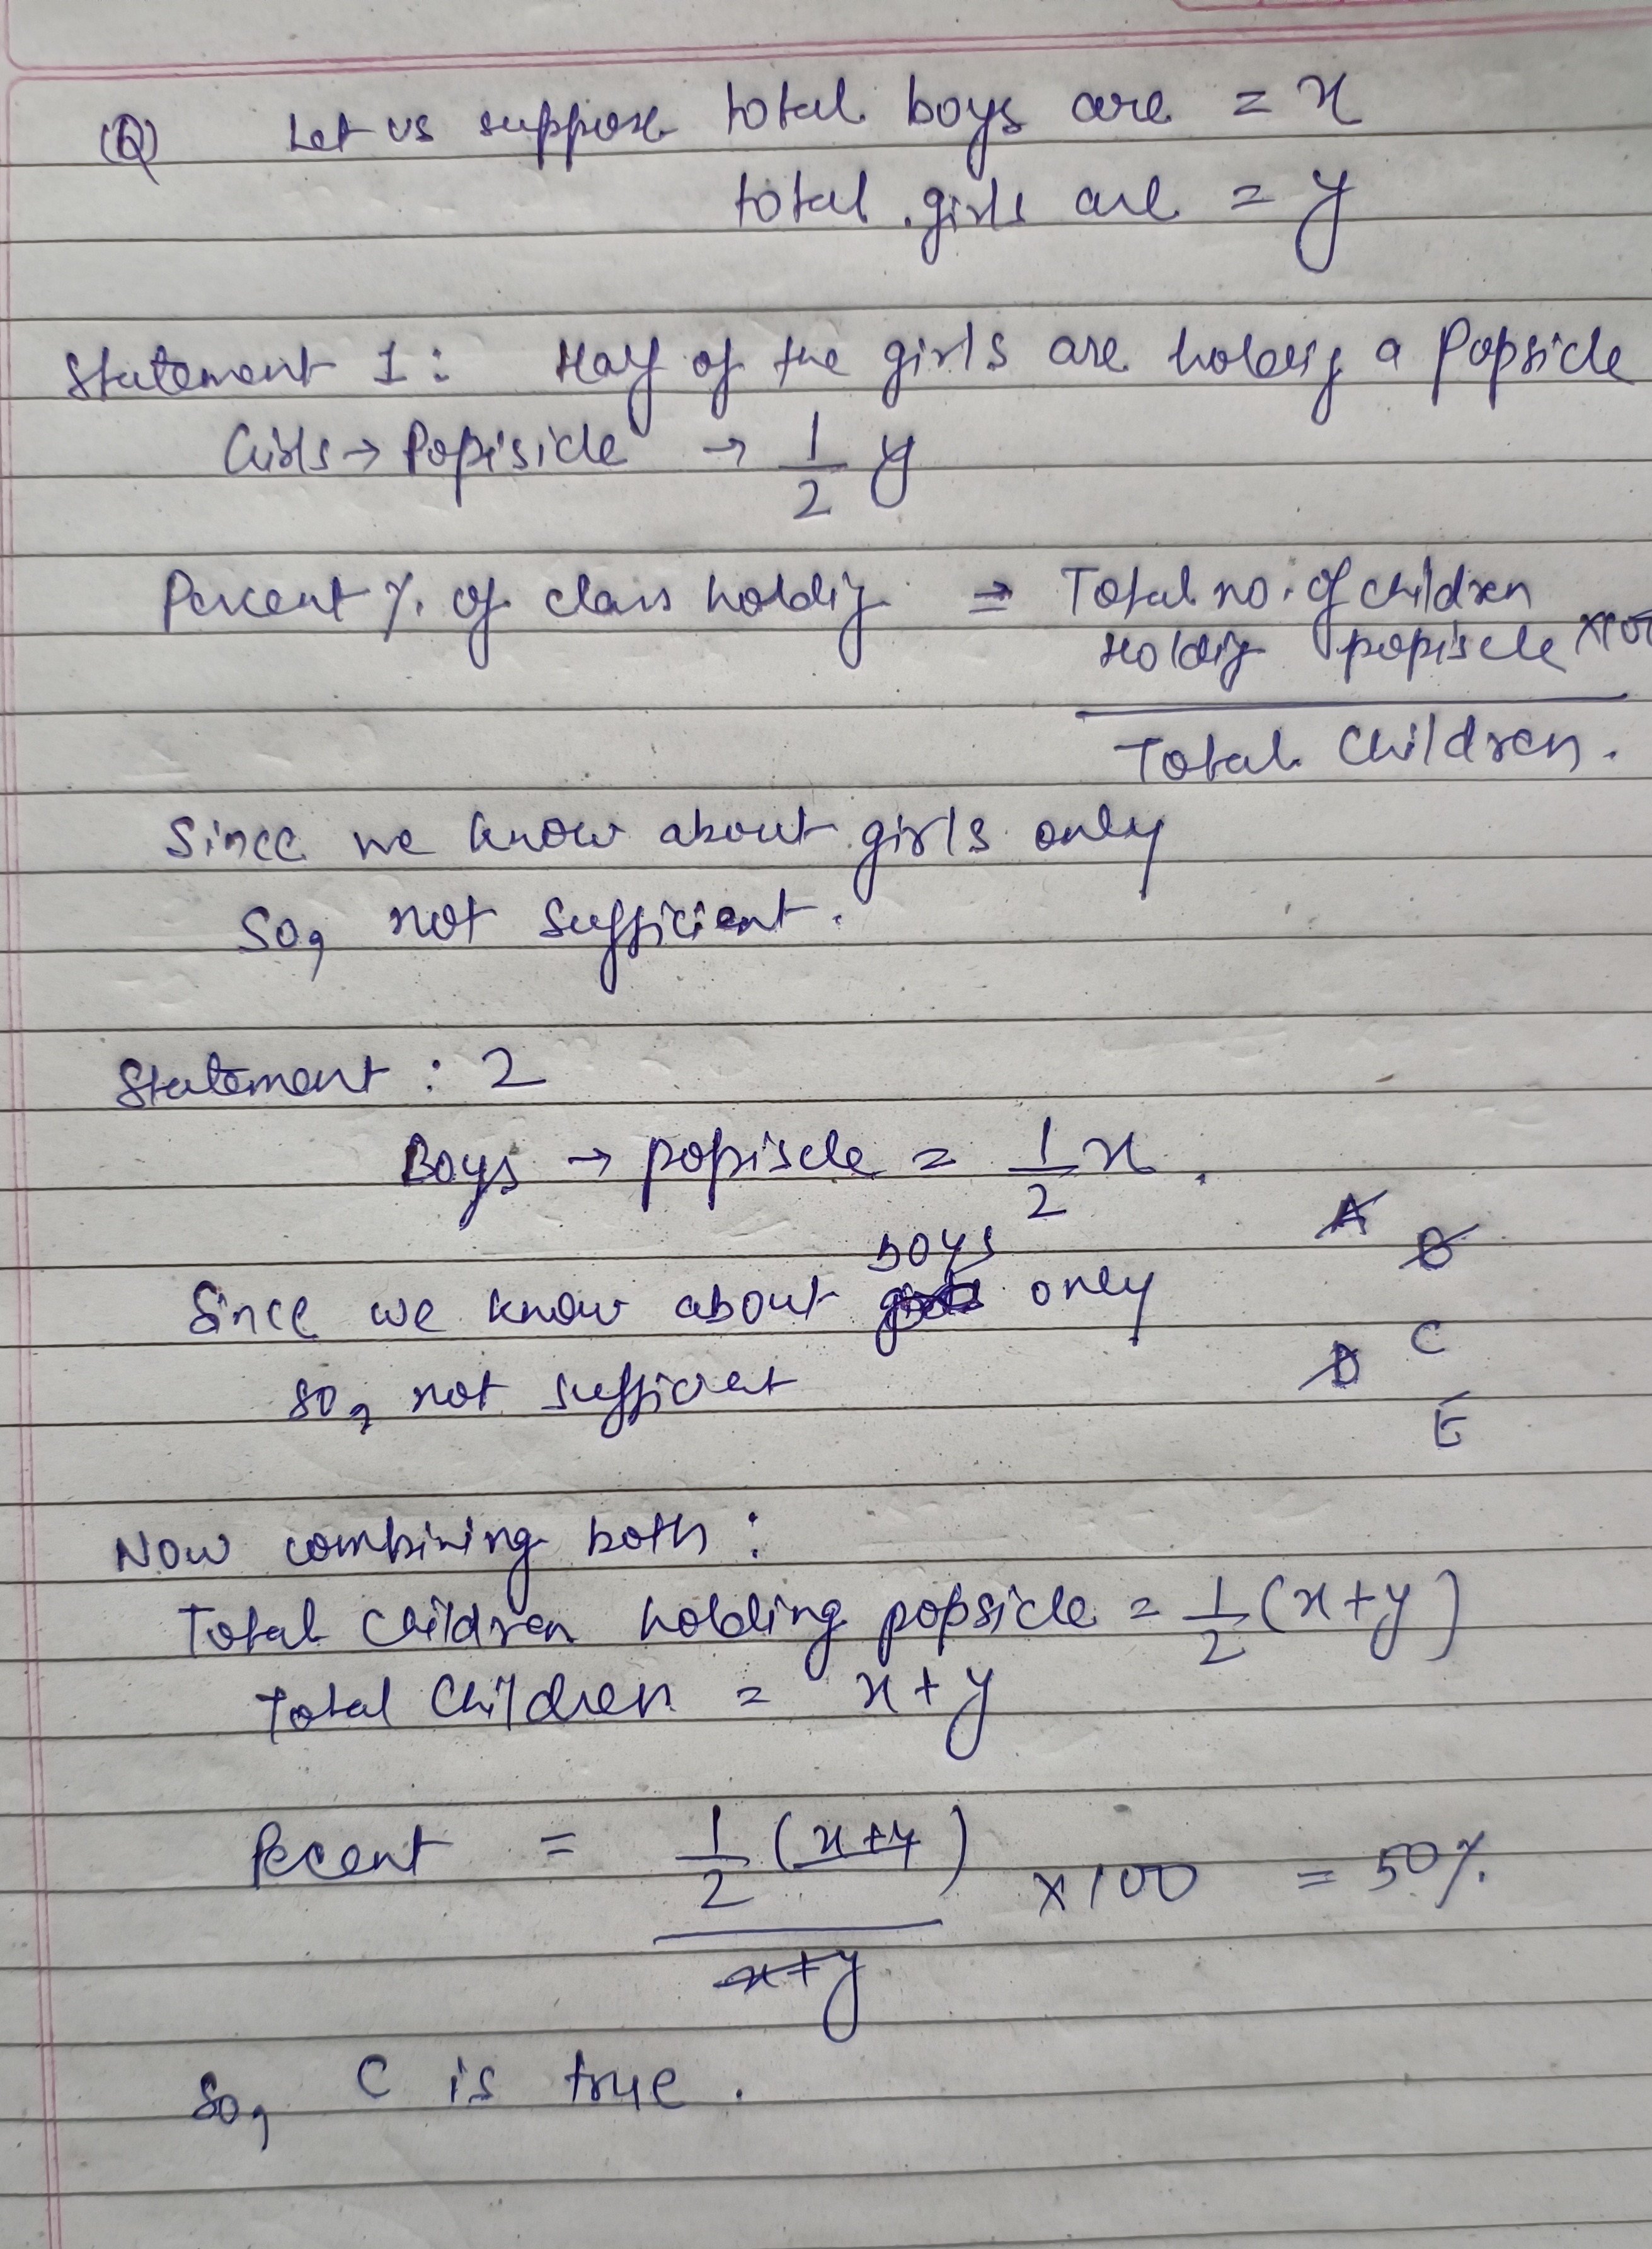 (Q) Let us suppose total boys are = x
total girls are = y
Statement 1: Half of the girls are holdig a Popsicle
Girls → Popisicle → 1/2 y
Percent %. of class holdig = Total no. of children
Holdig popiscle ×100
Total Children.
Since we know about girls only
So, not sufficient.
Statement : 2
Boys → popiscle = 1/2 x.
A B
boys
Since we know about girls only
D C
so, not sufficient
E
Now combining both :
Total Children holding popsicle = 1/2 (x+y)
Total Children = x+y
Pecent = 1/2 (x+y) ×100 = 50%.
x+y
So, C is true.